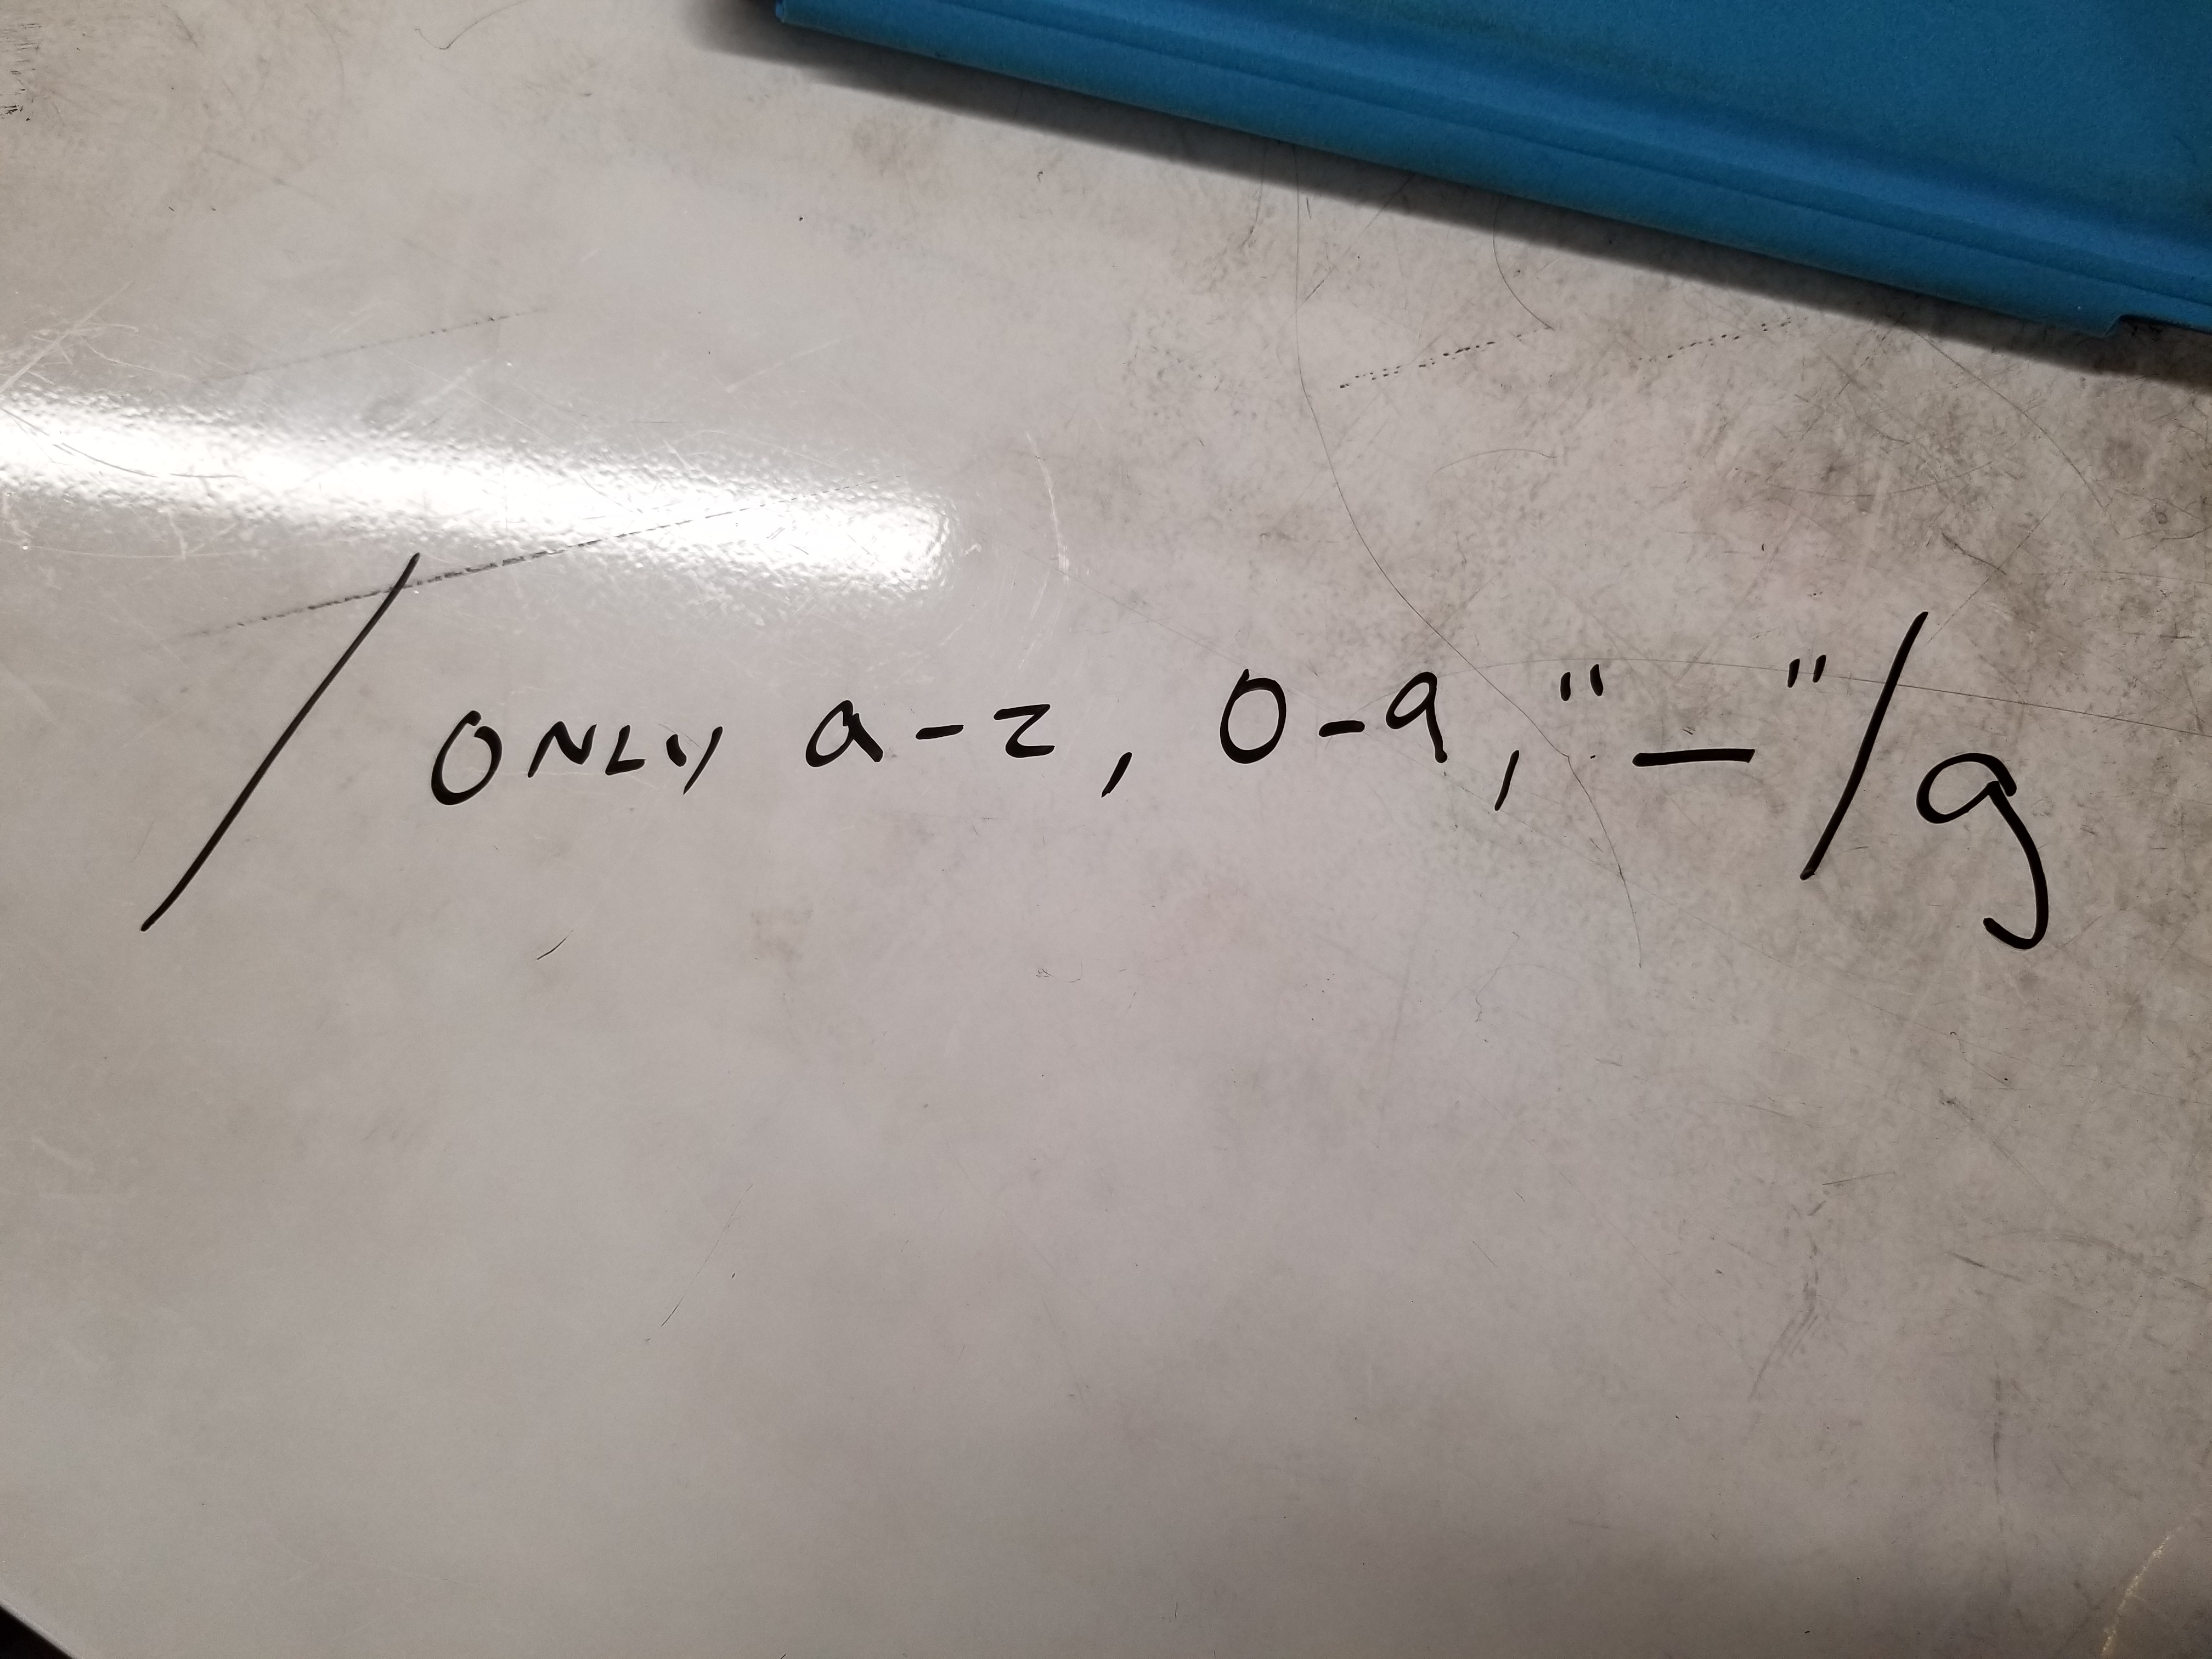 / ONLY a-z, 0-9, "—"/g